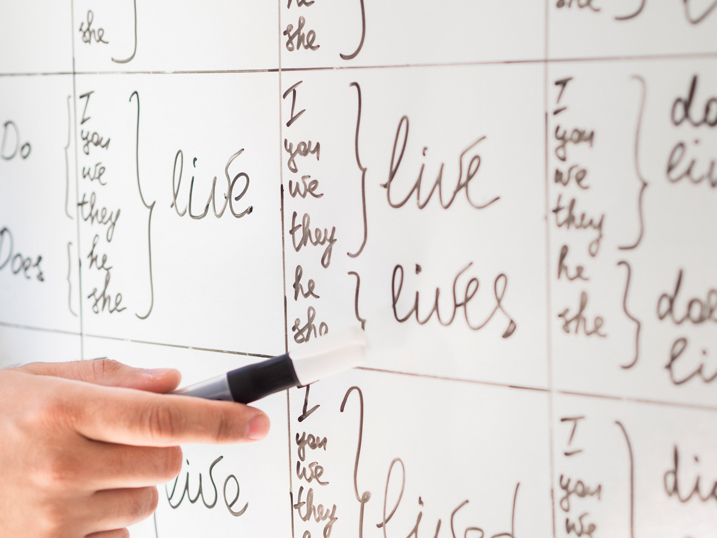 she
he
she
she
Do
Does
I
you
we
they
he
she
live
I
you
we
they
he
live
lives
I
you
we
they
he
she
live
I
you
we
they
lived
I
you
we